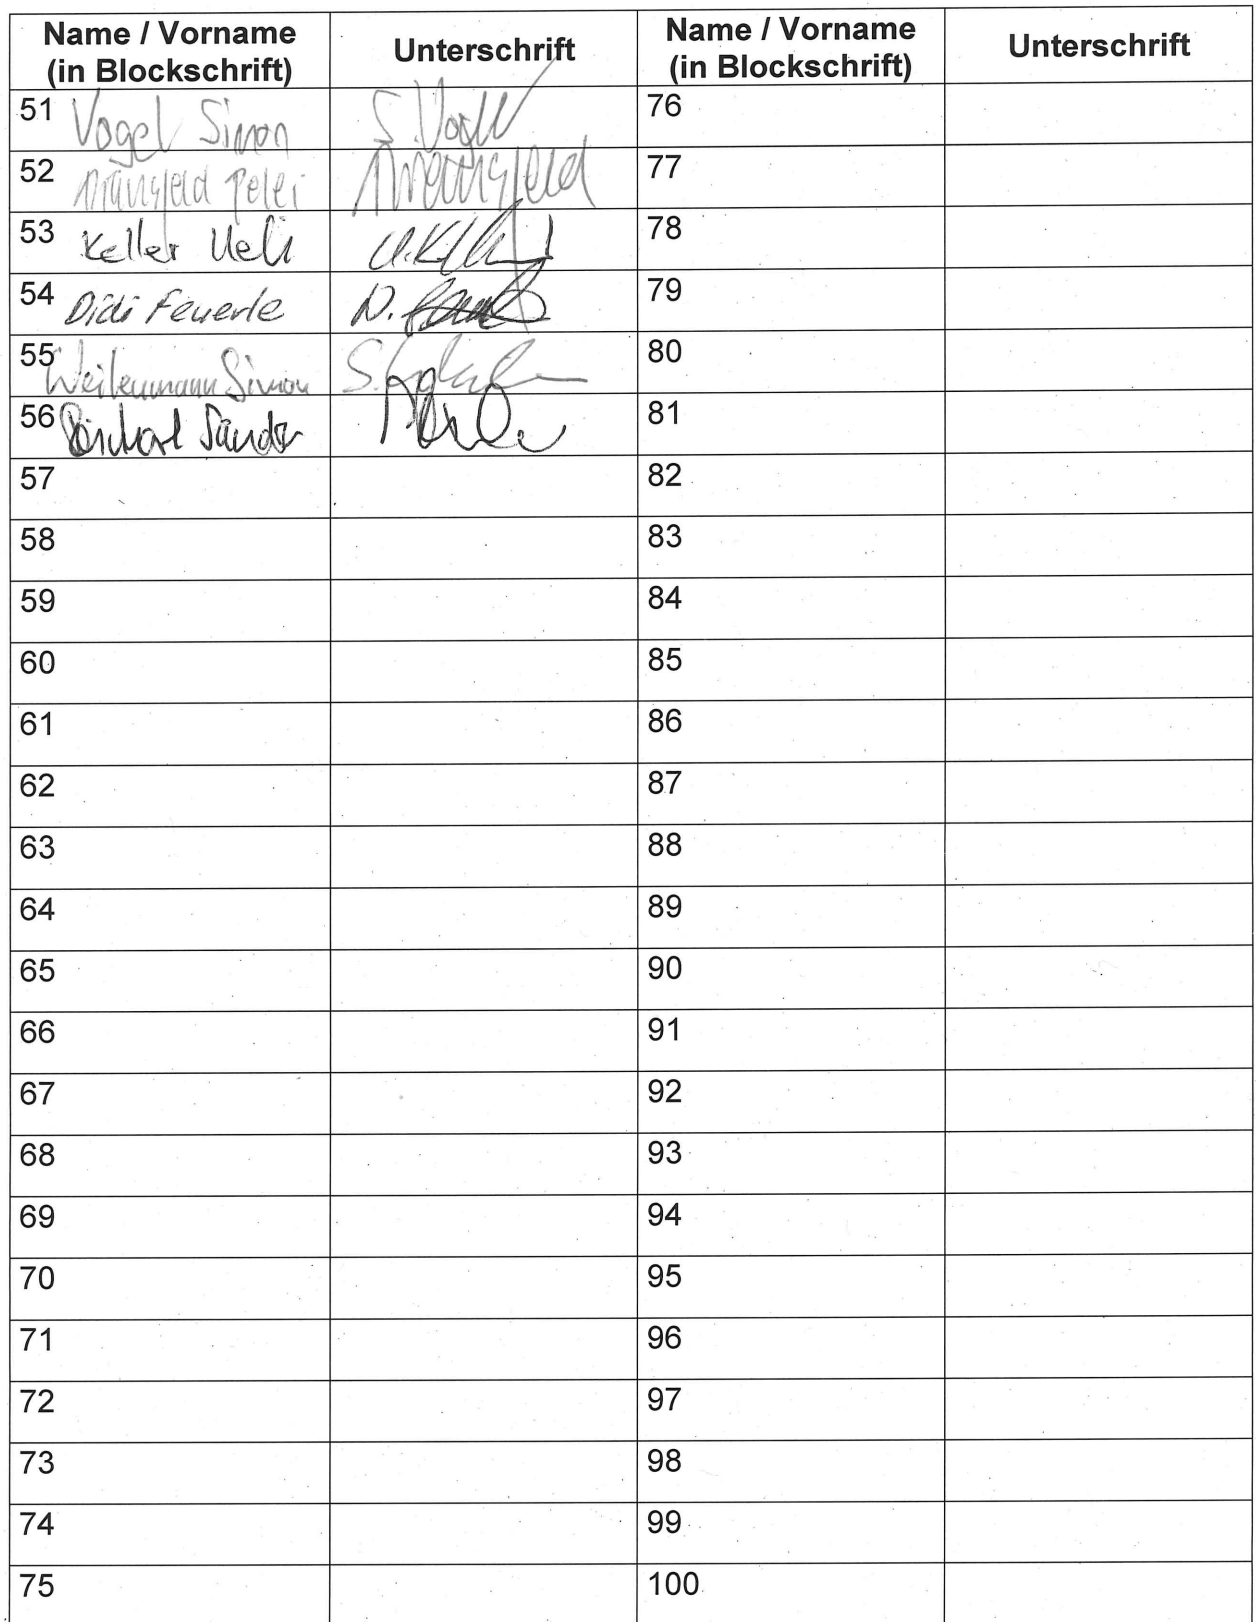 Name / Vorname
(in Blockschrift)
Unterschrift
Name / Vorname
(in Blockschrift)
Unterschrift
51 Vogel Simon S. Vogel 76
52 77
53 Keller Ueli 78
54 Didi Feuerle D. 79
55 Weilenmann Simon S. 80
56 81
57 82
58 83
59 84
60 85
61 86
62 87
63 88
64 89
65 90
66 91
67 92
68 93
69 94
70 95
71 96
72 97
73 98
74 99
75 100